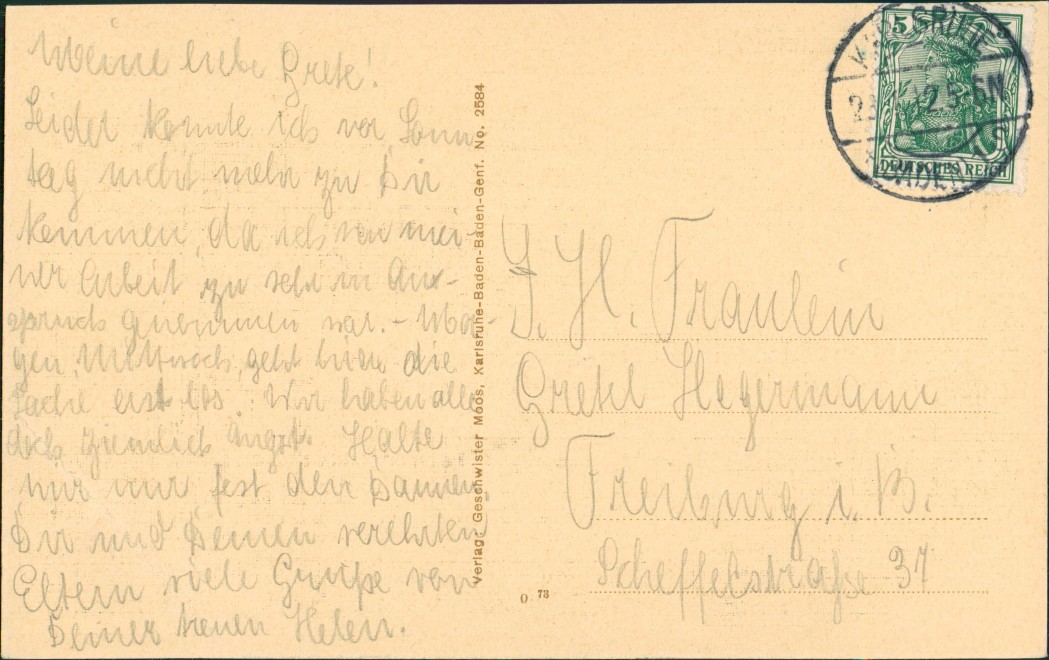 Meine liebe Grete!
Leider konnte ich vor Sonn
tag nicht mehr zu Dir
kommen, da ich von mei-
ner Arbeit zu sehr in An-
spruch genommen war. - Mor-
gen, Mittwoch, geht hier die
Sache erst los. Wir haben alle
doch ziemlich Angst. Halte
mir nur fest den Daumen.
Dir und Deinen verehrten
Eltern viele Grüße von
Deiner treuen Helen.
Verlag: Geschwister Moos, Karlsruhe-Baden-Baden-Genf. No. 2584
O 73
5 5
DEUTSCHES REICH
KARLSRUHE
2.5-6N
(BADEN)
I. H. Fräulein
Gretel Hegermann
Freiburg i. B.
Scheffelstraße 37